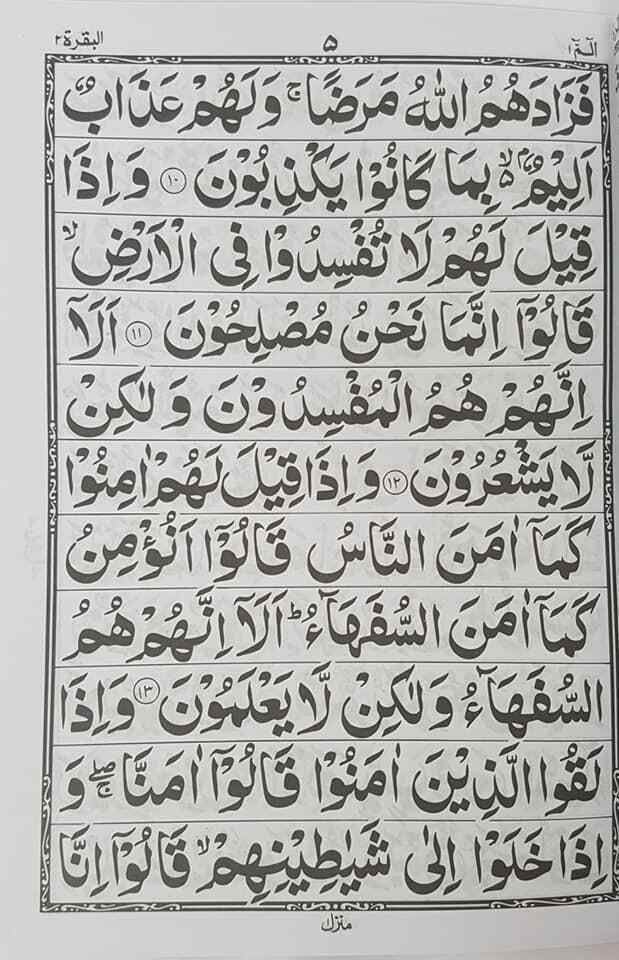 الٓمّٓ ١ ٥ البقرة ٢
فَزَادَهُمُ اللّٰهُ مَرَضًا ۚ وَلَهُمْ عَذَابٌ
اَلِيْمٌۢ ۙ۬ بِمَا كَانُوْا يَكْذِبُوْنَ ۝١٠ وَاِذَا
قِيْلَ لَهُمْ لَا تُفْسِدُوْا فِى الْاَرْضِ ۙ
قَالُوْٓا اِنَّمَا نَحْنُ مُصْلِحُوْنَ ۝١١ اَلَآ
اِنَّهُمْ هُمُ الْمُفْسِدُوْنَ وَلٰكِنْ
لَّا يَشْعُرُوْنَ ۝١٢ وَاِذَا قِيْلَ لَهُمْ اٰمِنُوْا
كَمَآ اٰمَنَ النَّاسُ قَالُوْٓا اَنُؤْمِنُ
كَمَآ اٰمَنَ السُّفَهَآءُ ؕ اَلَآ اِنَّهُمْ هُمُ
السُّفَهَآءُ وَلٰكِنْ لَّا يَعْلَمُوْنَ ۝١٣ وَاِذَا
لَقُوا الَّذِيْنَ اٰمَنُوْا قَالُوْٓا اٰمَنَّا ۖۚ وَ
اِذَا خَلَوْا اِلٰى شَيٰطِيْنِهِمْ ۙ قَالُوْٓا اِنَّا
منزل